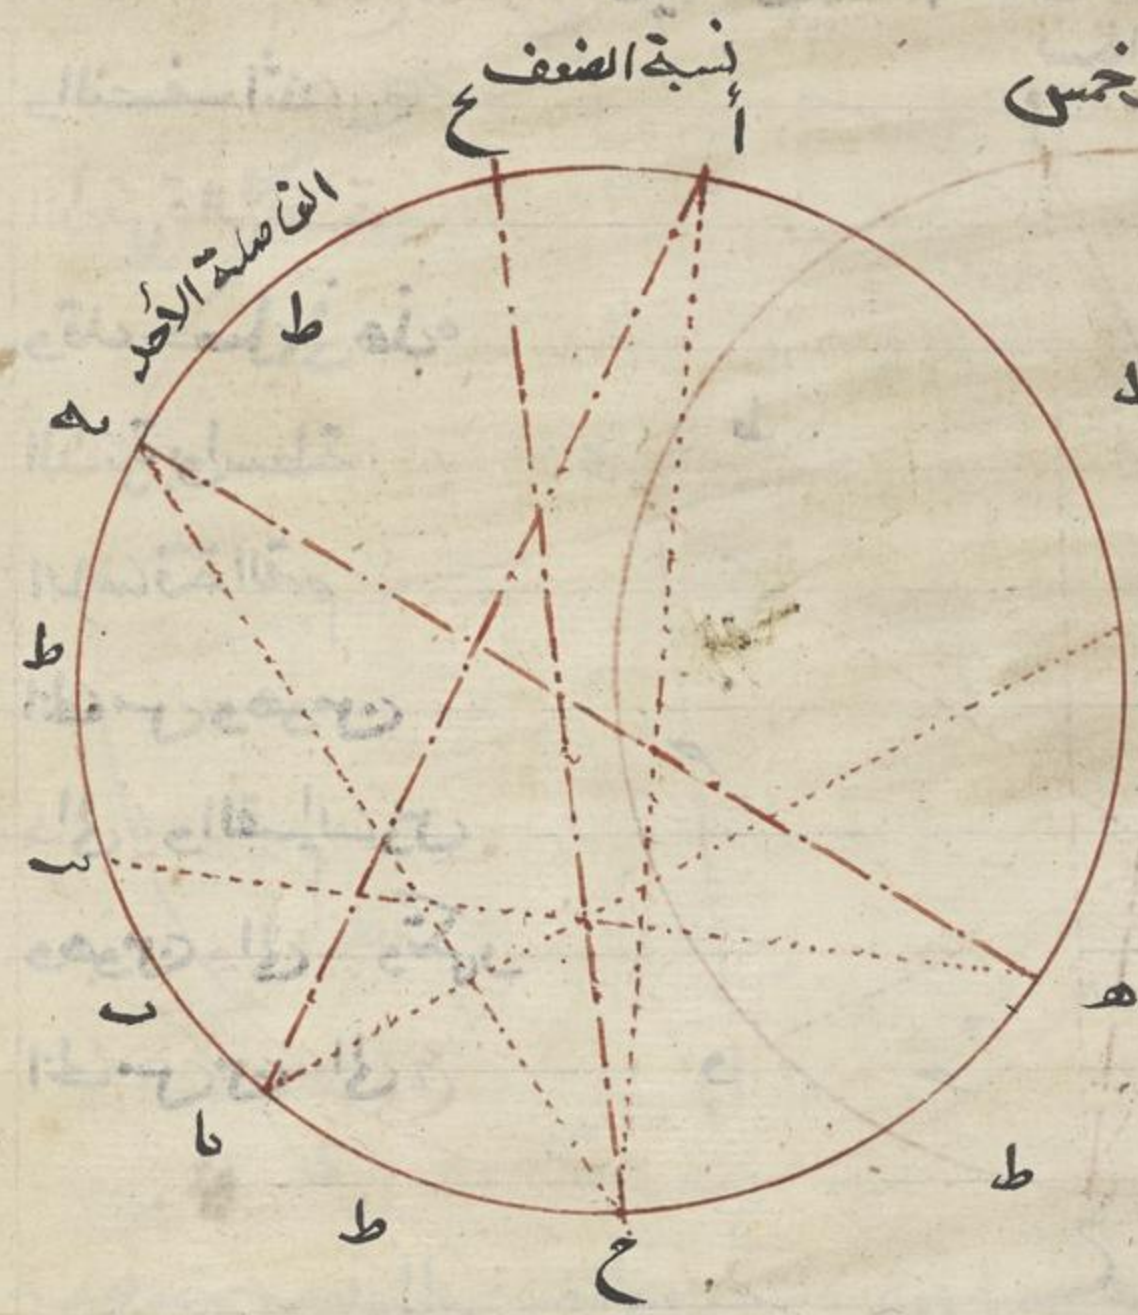 خمس
نسبة الضعف
أ
ح
الفاصلة الأحد
ط
يه
ط
ب
ب
يا
ط
ح
ط
ه